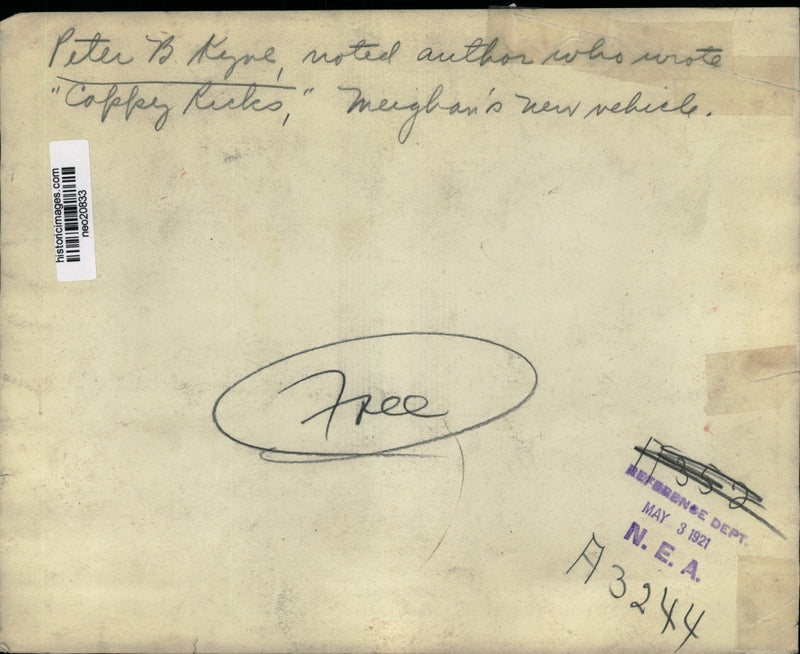 Peter B. Kyne, noted author who wrote
"Cappy Ricks," Meighan's new vehicle.
historicimages.com
neo20833
Free
17552
REFERENCE DEPT.
MAY 3 1921
N. E. A.
A3244